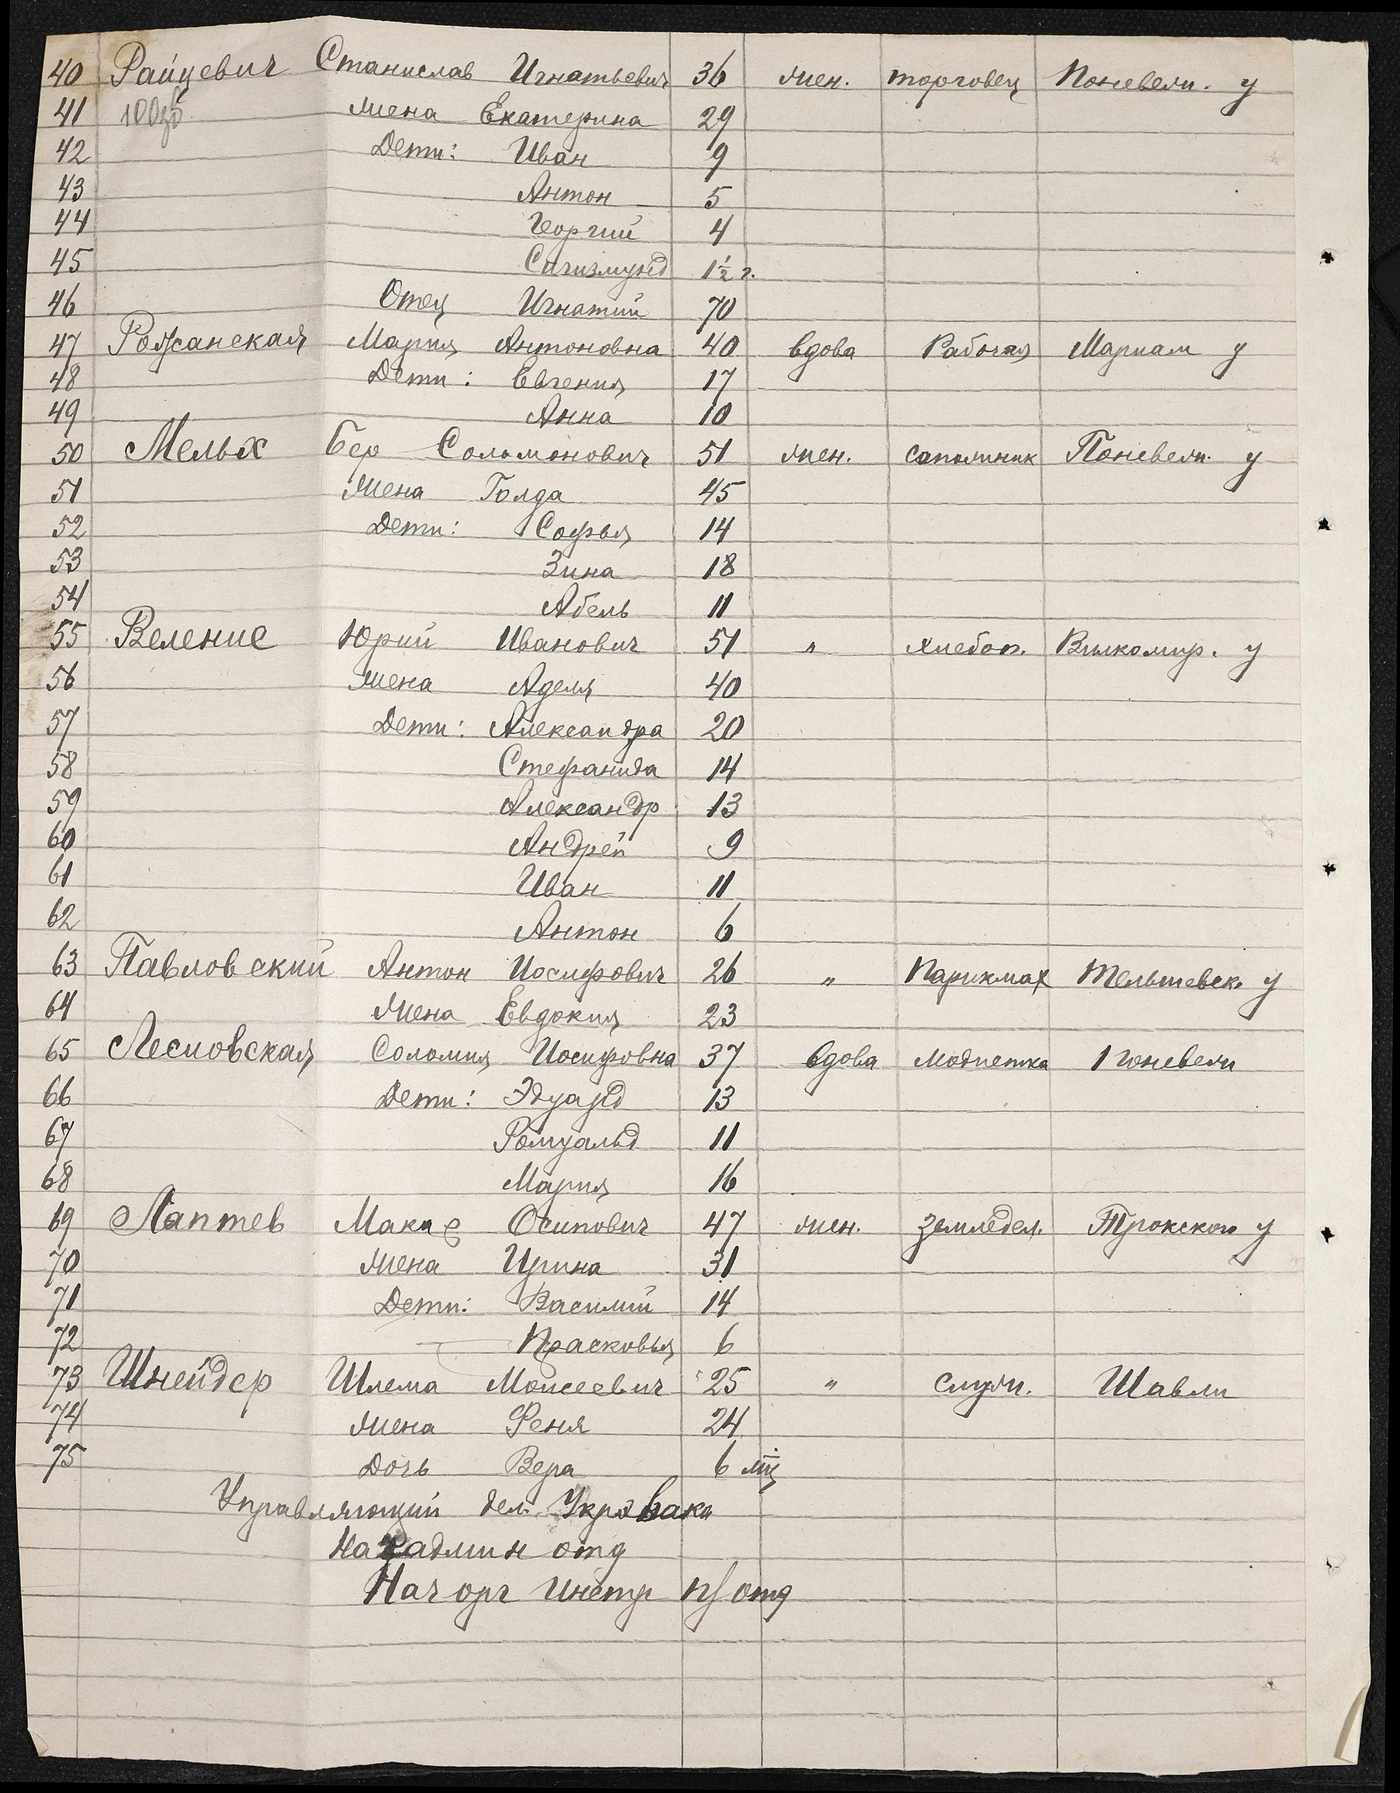 40 Райцевич Станислав Игнатьевич 36 жен. торговец Поневеж. у
41 жена Екатерина 29
42 Дети: Иван 9
43 Антон 5
44 Георгий 4
45 Сигизмунд 1½ г.
46 Отец Игнатий 70
47 Рожанская Мария Антоновна 40 вдова Рабочая Мариам у
48 Дети: Евгения 17
49 Анна 10
50 Мельх Бер Соломонович 51 жен. сапожник Поневеж. у
51 жена Голда 45
52 Дети: Софья 14
53 Зина 18
54 Абель 11
55 Веление Юрий Иванович 51 " хлебоп. Вилкомир. у
56 жена Аделя 40
57 Дети: Александра 20
58 Стефанида 14
59 Александр 13
60 Андрей 9
61 Иван 11
62 Антон 6
63 Павловский Антон Иосифович 26 " Парикмах Тельшевск. у
64 жена Евдокия 23
65 Лесновская Соломия Иосифовна 37 вдова модистка Поневеж
66 Дети: Эдуард 13
67 Ромуальд 11
68 Мария 16
69 Лаптев Макар Осипович 47 жен. Земледел. Трокского у
70 жена Ирина 31
71 Дети: Василий 14
72 Прасковья 6
73 Шнейдер Шлема Моисеевич 25 " служ. Шавли
74 жена Феня 24
75 Дочь Вера 6 мц
Управляющий дел. Укрэвака
Начадмин отд
Начорг Инстр отд